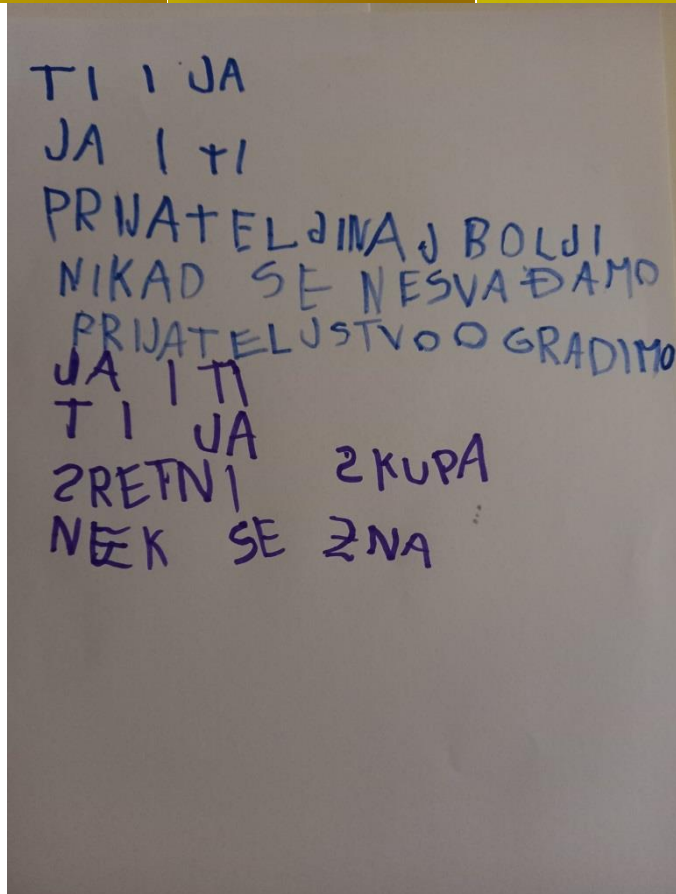 TI I JA
JA I TI
PRIJATELJINAJ BOLJI
NIKAD SE NESVAĐAMO
PRIJATELJSTVO O GRADIMO
JA I TI
TI JA
SRETNI SKUPA
NEK SE ZNA